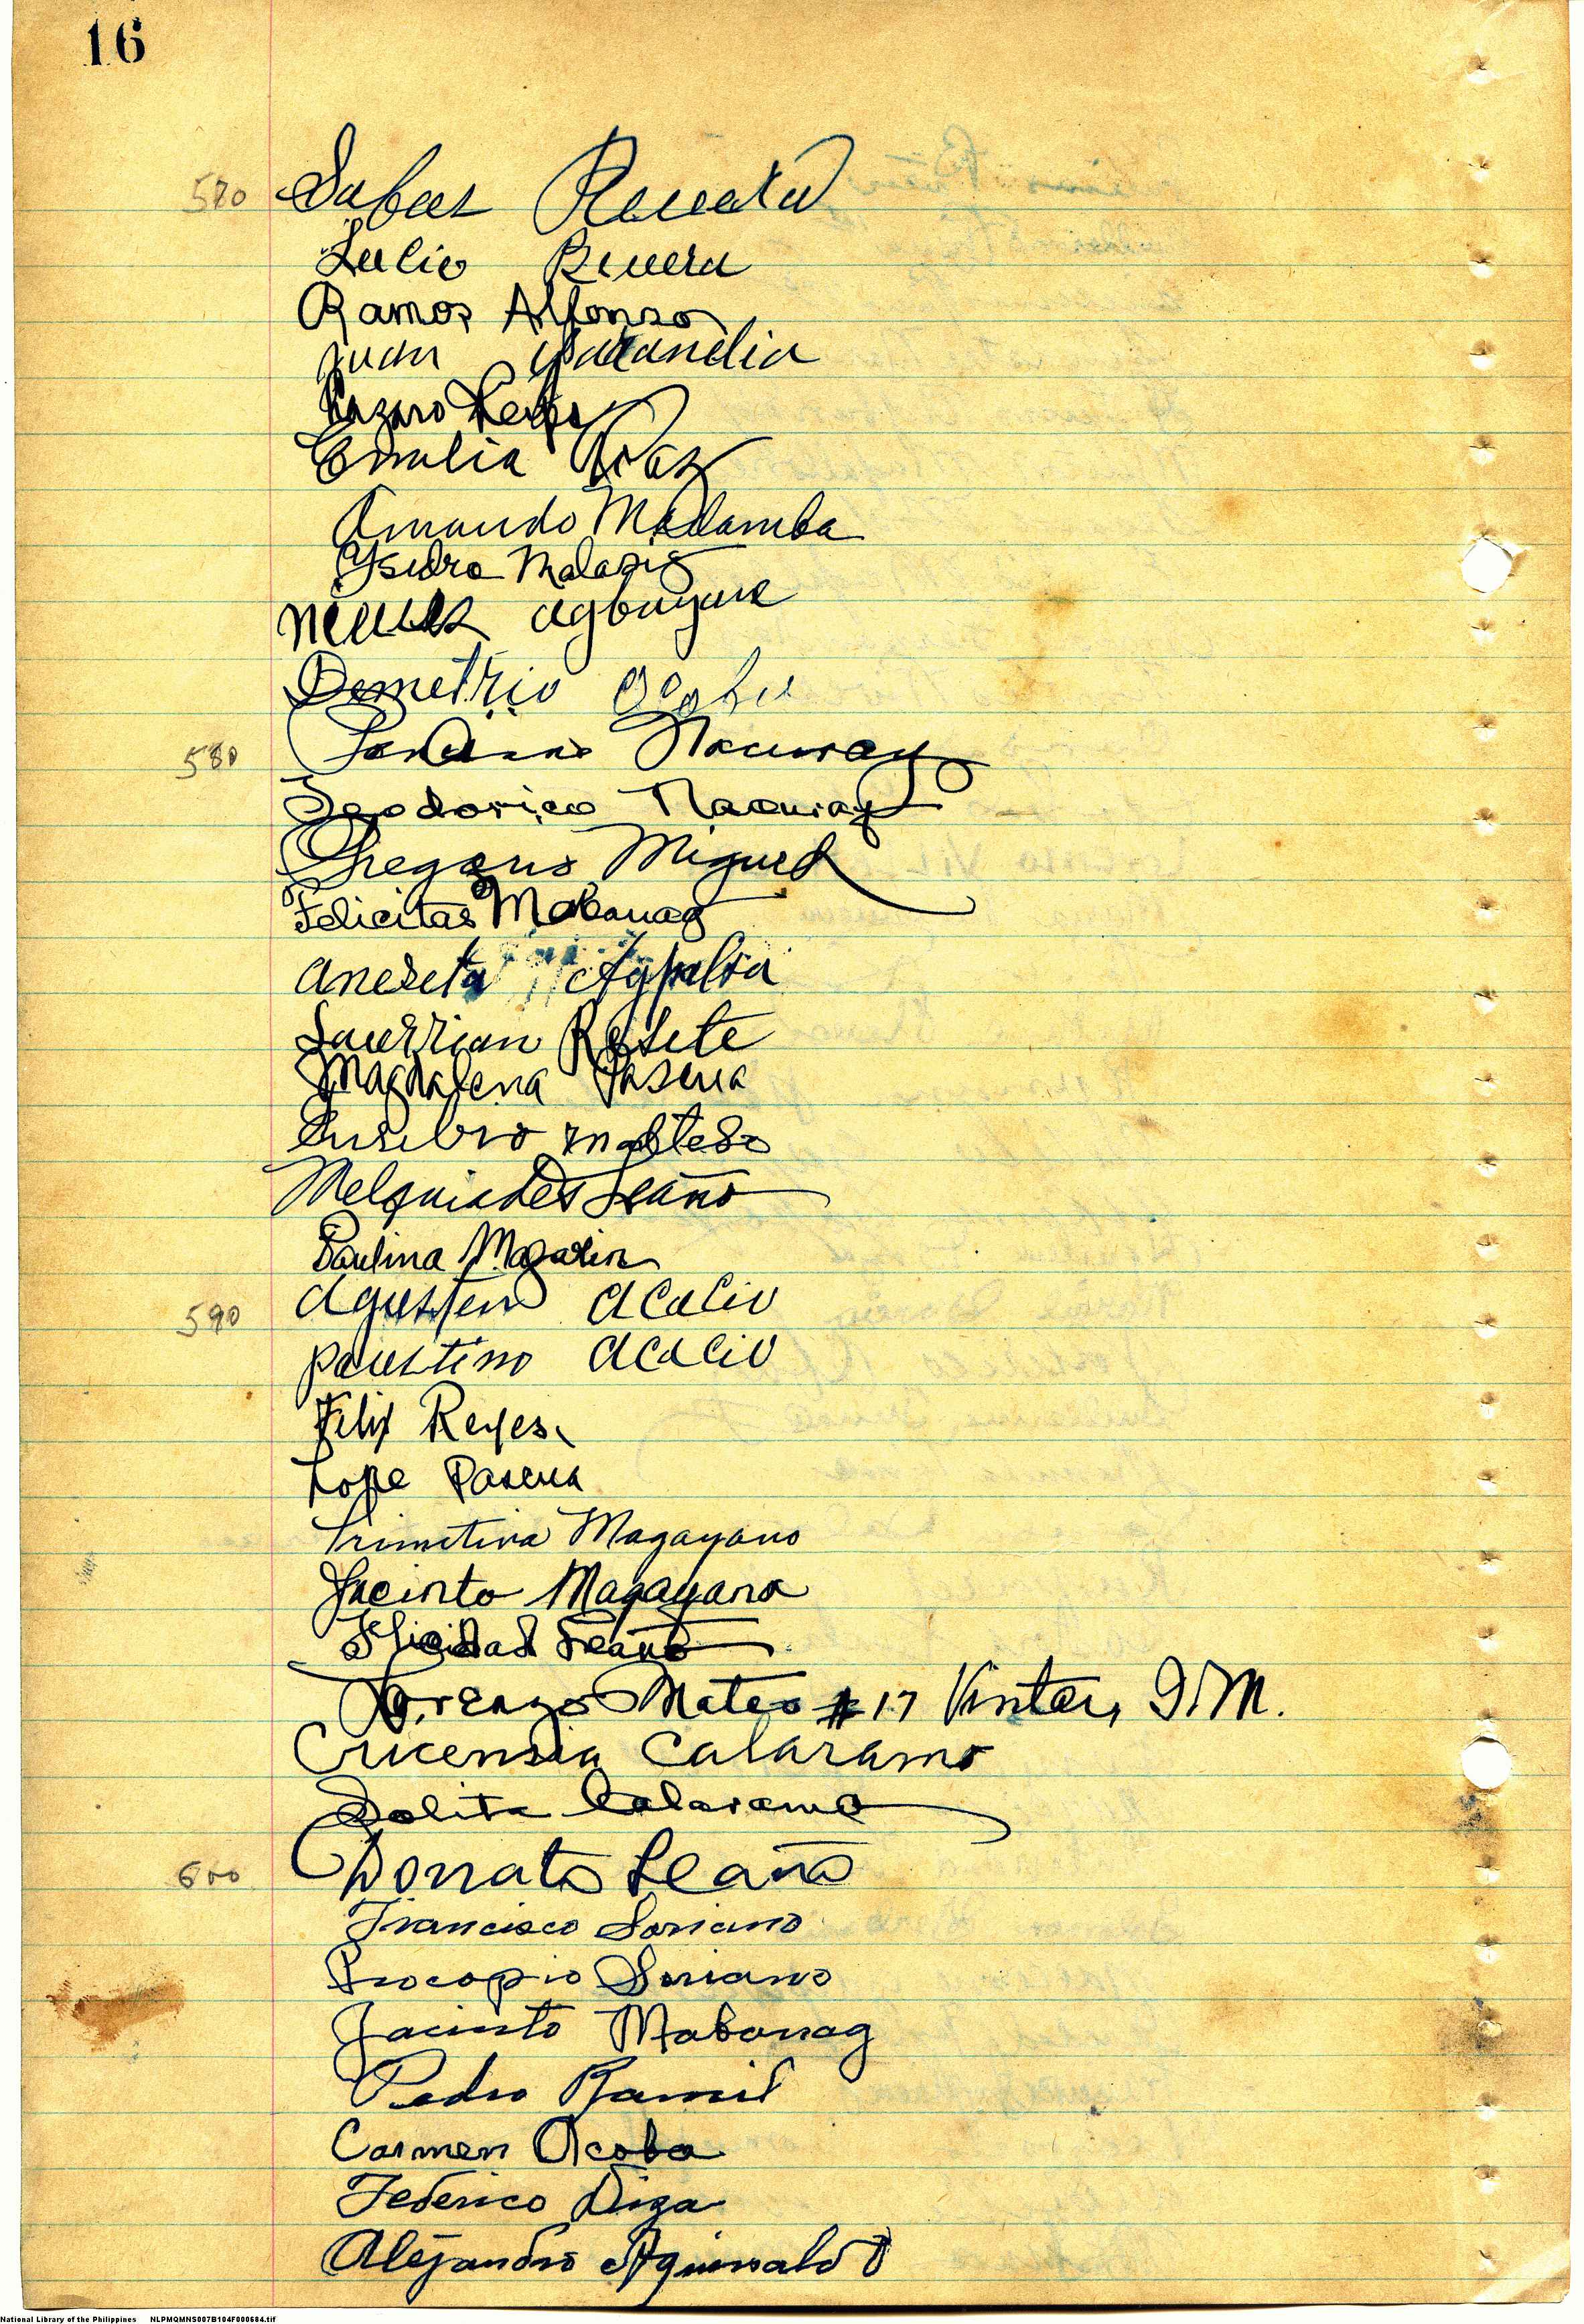 16
570 Sabas
Lucio Rivera
Ramos Alfonso
Juan
Lazaro Reyes
Emilia Diaz
Amando Madamba
Ysidro Malasig
Nieves Agbuyane
Demetrio Acoba
580
Teodorico
Gregorio Miguel
Felicitas Mabanag
Anereta Agpalsa
Rosete
Magdalena Pascua
Eusebio
Melquiades Leaño
Paulina Magarin
590 Agusten Acacio
Paustino Acacio
Felix Reyes
Lope Pascua
Primetiva Magayano
Jacinto Magayano
Felicidad Leaño
Lorenzo Mateo #17 Vintar, I.N.
Cricensia Calaramo
Lolita Calaramo
600 Donnato Leaño
Francisco Soriano
Procopio Soriano
Jacinto Mabanag
Pedro Ramil
Carmen Acoba
Federico Diza
Alejandro Aguinaldo
National Library of the Philippines NLPMQMNS007B104F000684.tif